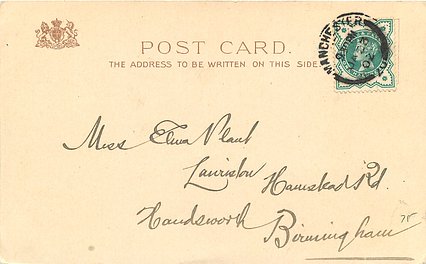 POST CARD.
THE ADDRESS TO BE WRITTEN ON THIS SIDE.
MANCHESTER
Miss Elma Plant
Lauriston
Hamstead Rd.
Handsworth
Birmingham